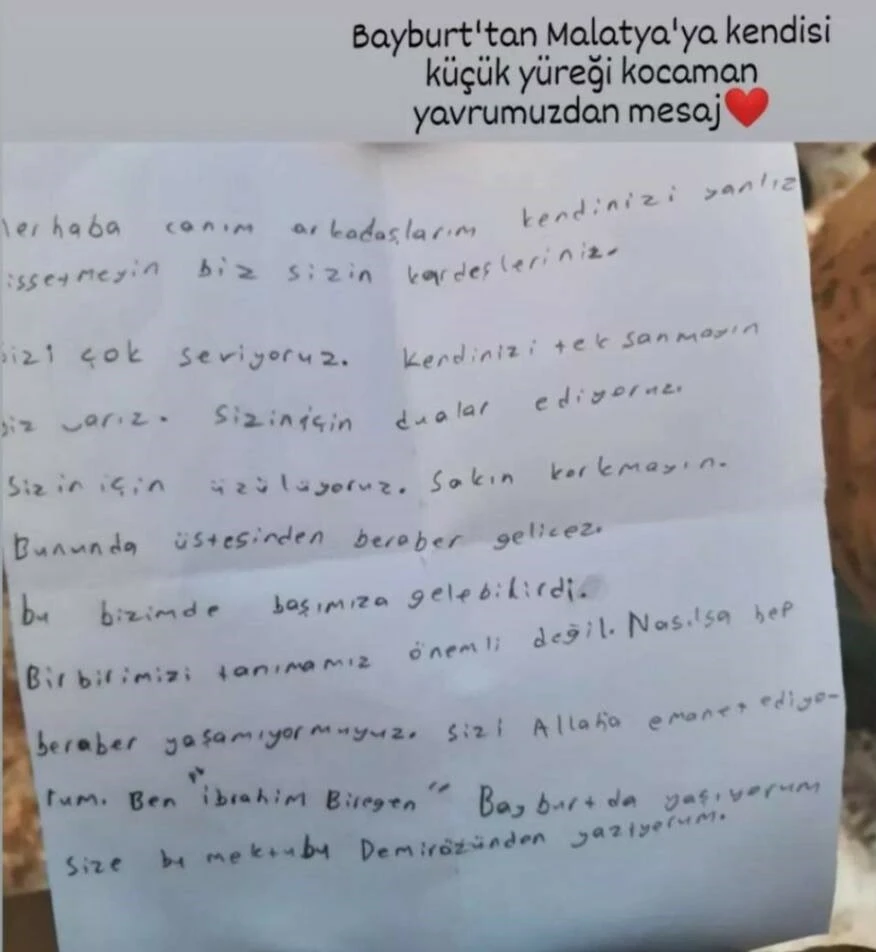 Bayburt'tan Malatya'ya kendisi
küçük yüreği kocaman
yavrumuzdan mesaj❤️
erhaba canım arkadaşlarım kendinizi yanlız
issetmeyin biz sizin kardeşleriniz.
izi çok seviyoruz. Kendinizi tek sanmayın
iz varız. Siziniçin dualar ediyoruz.
Sizin için üzülüyoruz. Sakın korkmayın.
Bununda üstesinden beraber gelicez.
bu bizimde başımıza gelebilirdi.
Birbirimizi tanımamız önemli değil. Nasılsa hep
beraber yaşamıyormuyuz. Sizi Allaha emanet ediyo-
rum. Ben "İbrahim Biregen" Bayburtda yaşıyorum
Size bu mektubu Demirözünden yazıyorum.